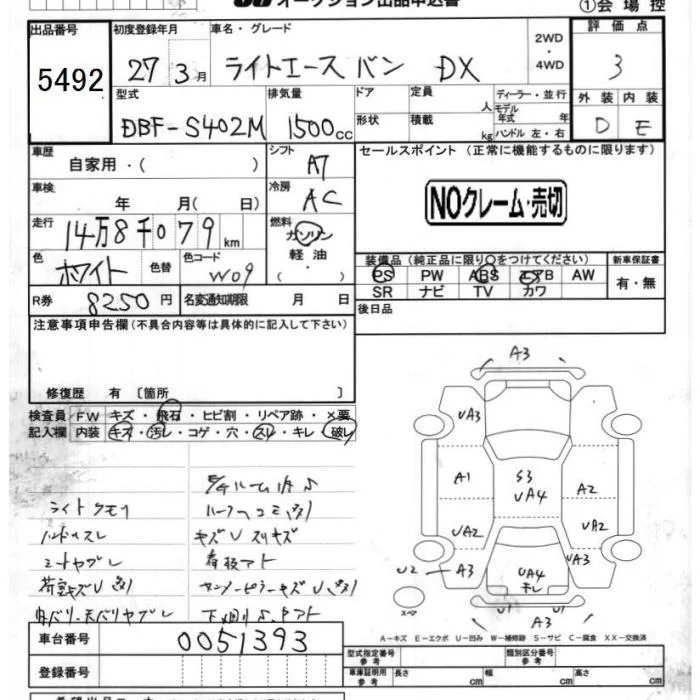 オークション出品申込書
①会場控
出品番号
5492
初度登録年月
27年3月
車名・グレード
ライトエース バン DX
2WD
・
4WD
評価点
3
外装 内装
D E
型式
DBF-S402M
排気量
1500cc
ドア
形状
定員 人
積載 kg
ディーラー・並行
モデル年式 年
ハンドル 左・右
車歴
自家用・( )
シフト
AT
車検
年 月( 日)
冷房
AC
走行
14万8千079km
燃料
ガソリン
軽油
・( )
色
ホワイト
色替
色コード
W09
R券 8250円
名変通知期限 月 日
セールスポイント (正常に機能するものに限ります)
NOクレーム・売切
装備品(純正品に限り○をつけてください)
新車保証書
PS PW ABS エアB AW
SR ナビ TV カワ
有・無
後日品
注意事項申告欄(不具合内容等は具体的に記入して下さい)
修復歴 有 〔箇所 〕
検査員 FW キズ・飛石・ヒビ割・リペア跡・×要
記入欄 内装 キズ・汚レ・コゲ・穴・スレ・キレ・破レ
ライトクモリ
ハンドルスレ
シートヤブレ
キズU スリキズ
看板アト
A3
UA3
A1
S3
UA4
A2
UA2
UA2
U2
A3
UA4
キレ
UA3
U1
U1
A3
スペア
A-キズ E-エクボ U-凹み W-補修跡 S-サビ C-腐食 XX-交換済
車台番号
0051393
登録番号
型式指定番号
参考
類別区分番号
参考
車検証明用
参考
長さ cm
幅 cm
高さ cm